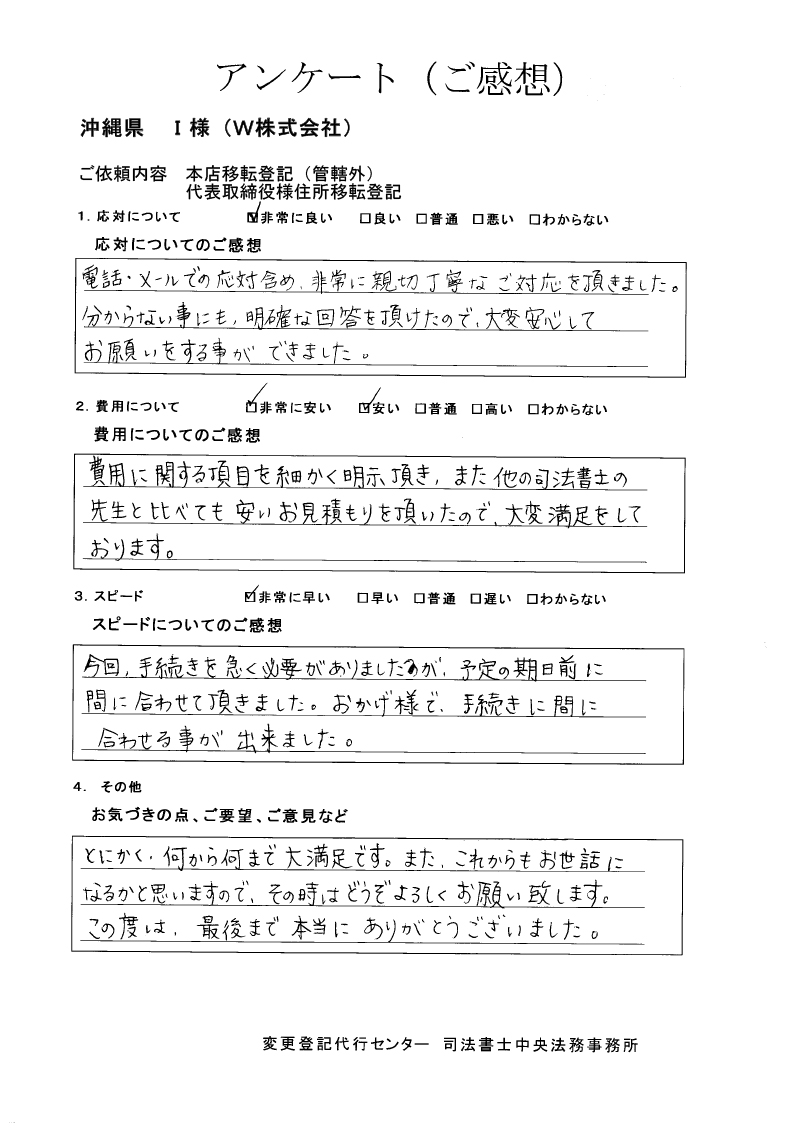 アンケート（ご感想）
沖縄県　Ｉ様（Ｗ株式会社）
ご依頼内容　本店移転登記（管轄外）
代表取締役様住所移転登記
1. 応対について　☑非常に良い　□良い　□普通　□悪い　□わからない
応対についてのご感想
電話・メールでの応対含め、非常に親切丁寧なご対応を頂きました。
分からない事にも、明確な回答を頂けたので、大変安心して
お願いをする事ができました。
2. 費用について　☑非常に安い　☑安い　□普通　□高い　□わからない
費用についてのご感想
費用に関する項目を細かく明示頂き、また他の司法書士の
先生と比べても安いお見積もりを頂いたので、大変満足をして
おります。
3. スピード　☑非常に早い　□早い　□普通　□遅い　□わからない
スピードについてのご感想
今回、手続きを急ぐ必要がありましたが、予定の期日前に
間に合わせて頂きました。おかげ様で、手続きに間に
合わせる事が出来ました。
4.　その他
お気づきの点、ご要望、ご意見など
とにかく、何から何まで大満足です。また、これからもお世話に
なるかと思いますので、その時はどうぞよろしくお願い致します。
この度は、最後まで本当にありがとうございました。
変更登記代行センター　司法書士中央法務事務所